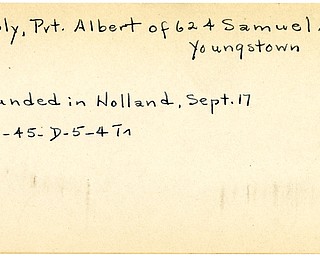 oly, Pvt. Albert of 624 Samuel
Youngstown
unded in Holland, Sept. 17
-45-D-5-4 Tr